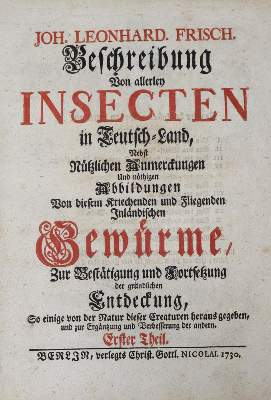 JOH. LEONHARD. FRISCH.
Beschreibung
Von allerley
INSECTEN
in Teutsch-Land,
Nebst
Nützlichen Anmerckungen
Und nöthigen
Abbildungen
Von diesem Kriechenden und Fliegenden
Inländischen
Gewürme,
Zur Bestätigung und Fortsetzung
der gründlichen
Entdeckung,
So einige von der Natur dieser Creaturen heraus gegeben,
und zur Ergäntzung und Verbesserung der andern.
Erster Theil.
BERLIN, verlegts Christ. Gottl. NICOLAI. 1730.